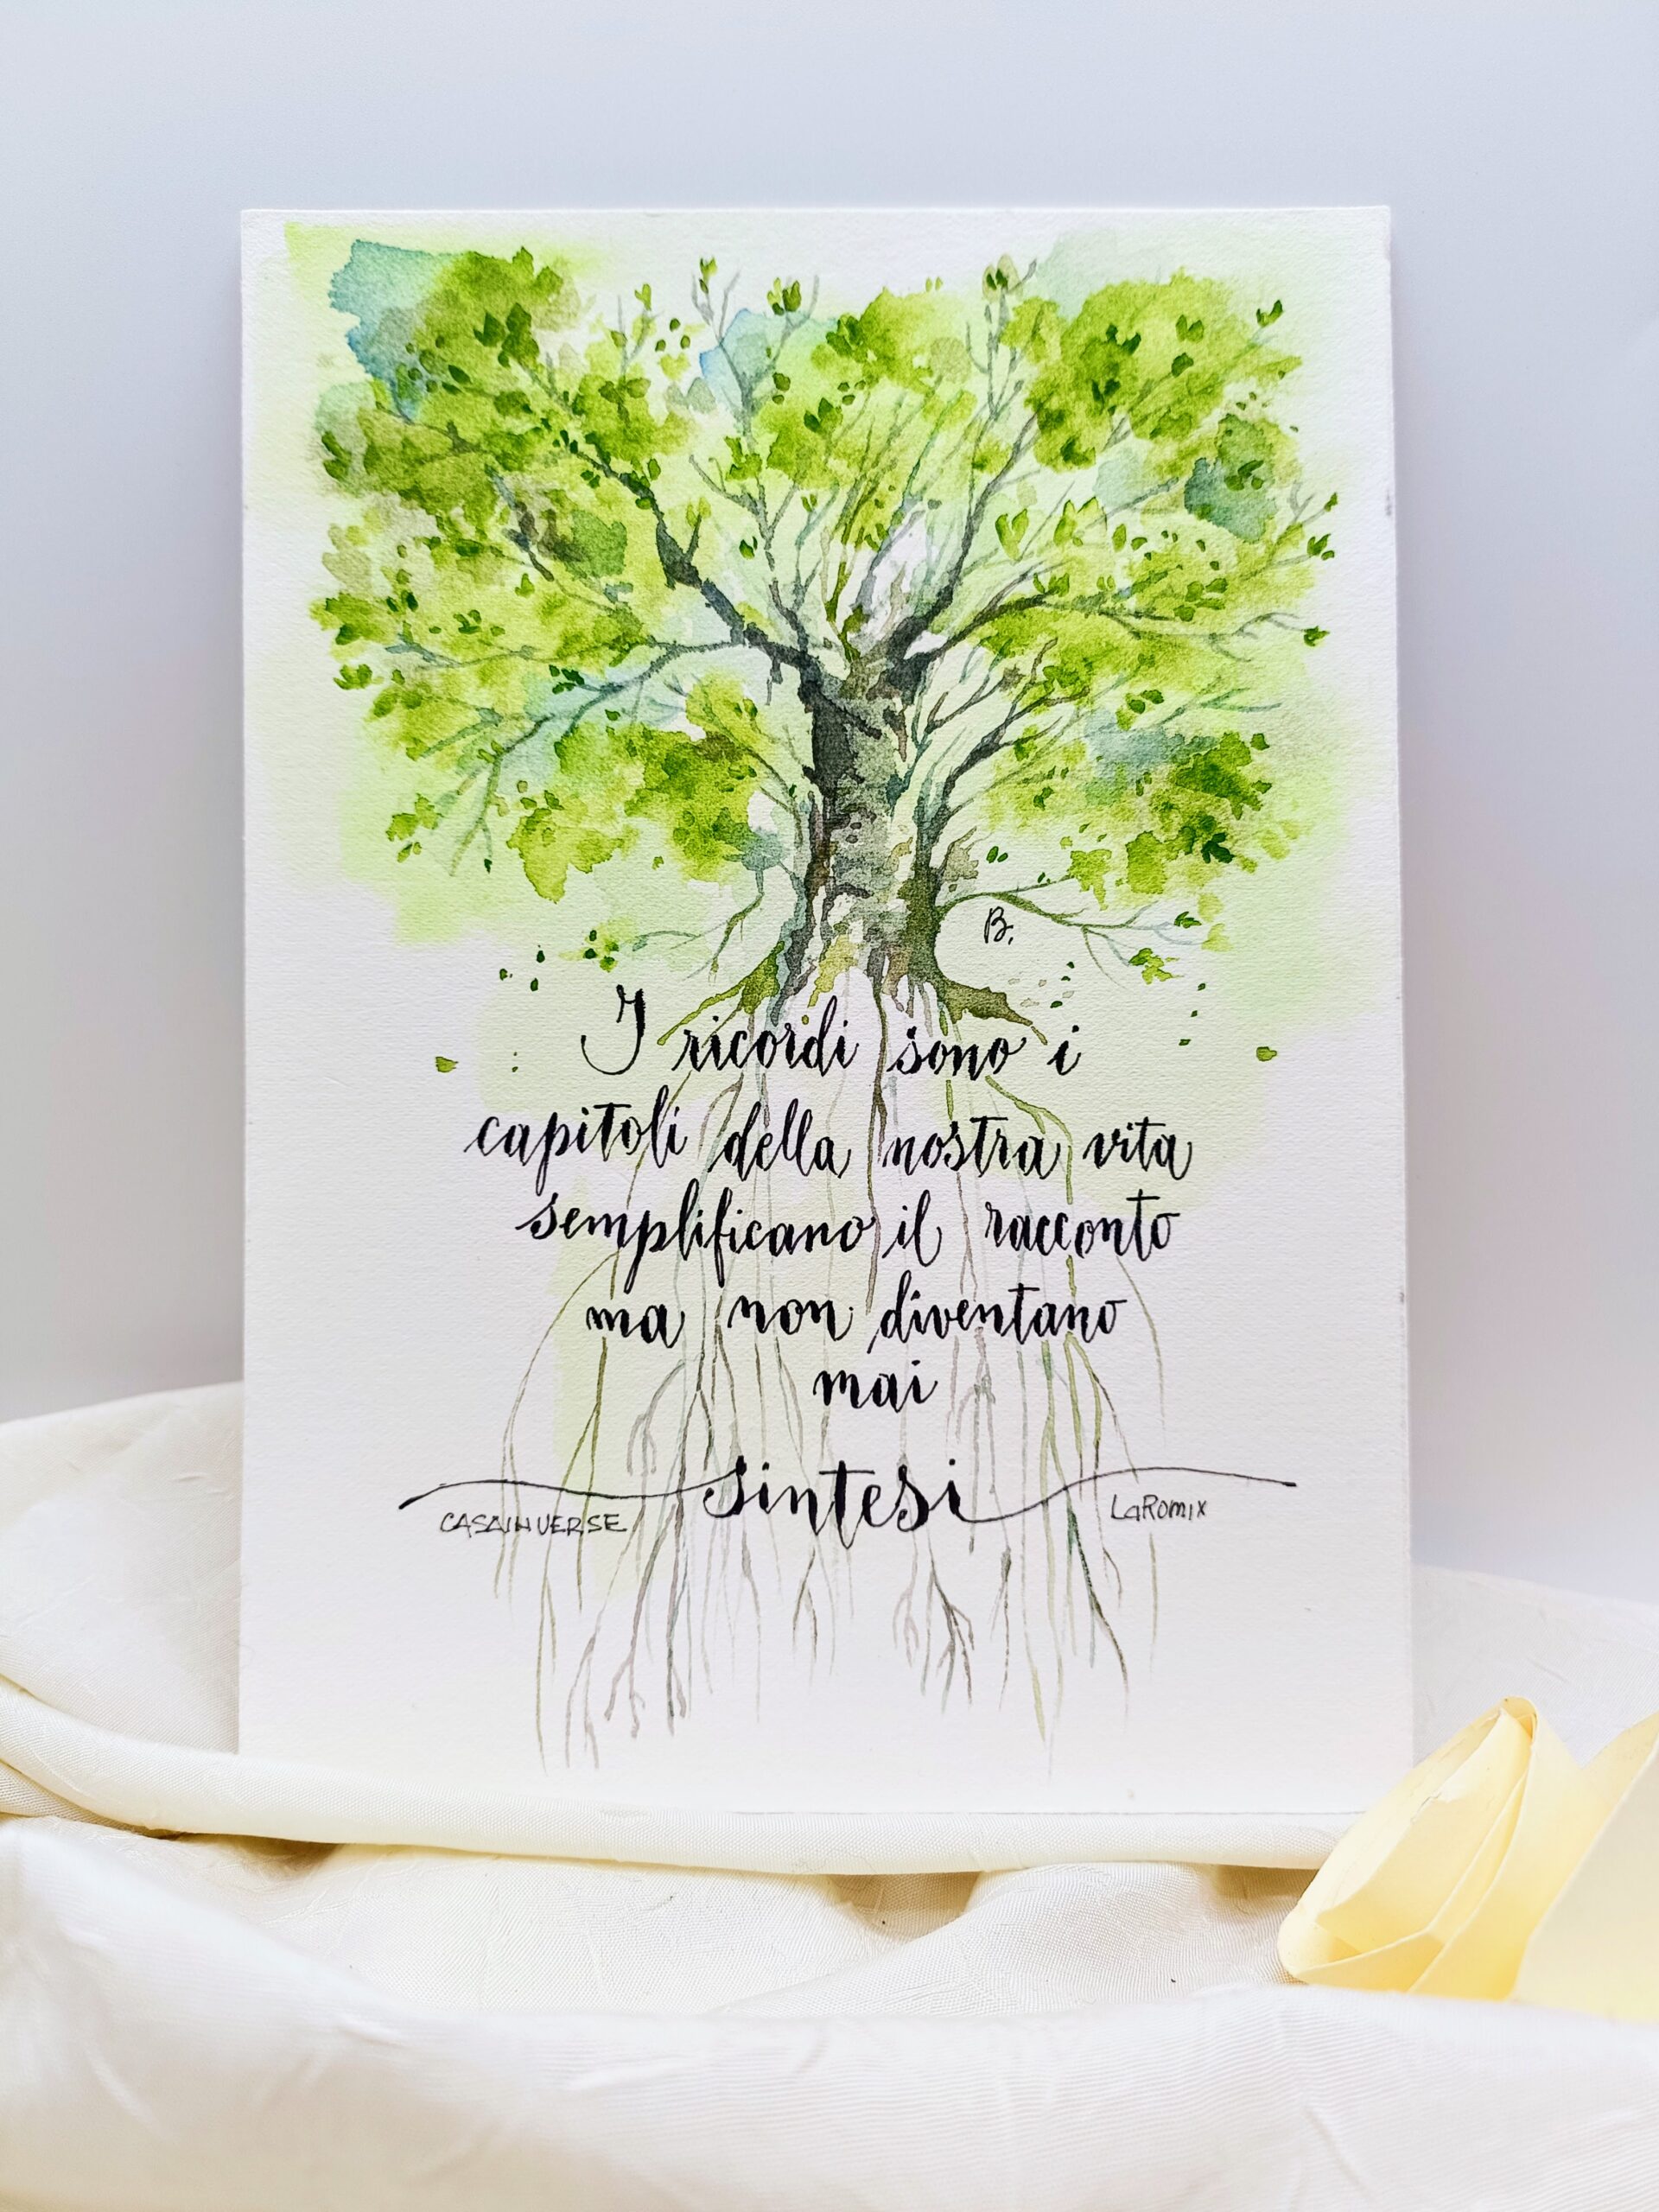 B.
I ricordi sono i
capitoli della nostra vita
semplificano il racconto
ma non diventano
mai
sintesi
CASAINVERSE
LaRomix